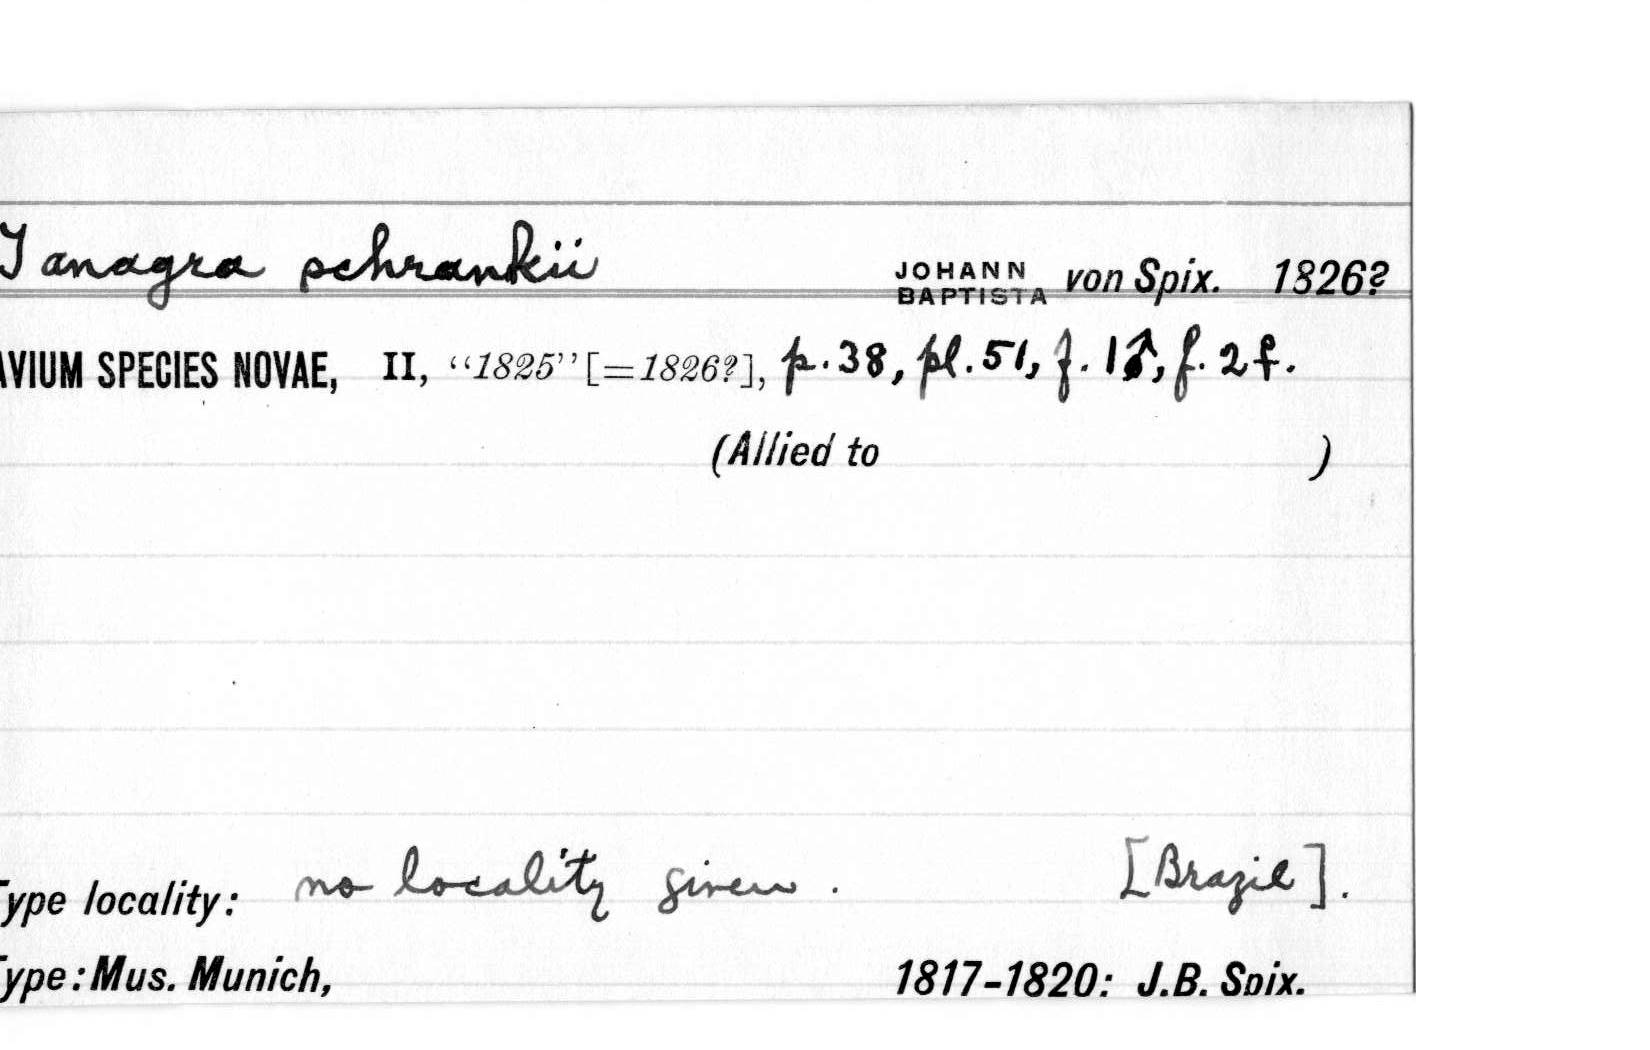 Tanagra schrankii JOHANN BAPTISTA von Spix. 1826?
AVIUM SPECIES NOVAE, II, “1825” [=1826?], p.38, pl.51, f. 1♂, f. 2 f.
(Allied to )
Type locality: no locality given. [Brazil].
Type: Mus. Munich, 1817-1820: J.B. Spix.